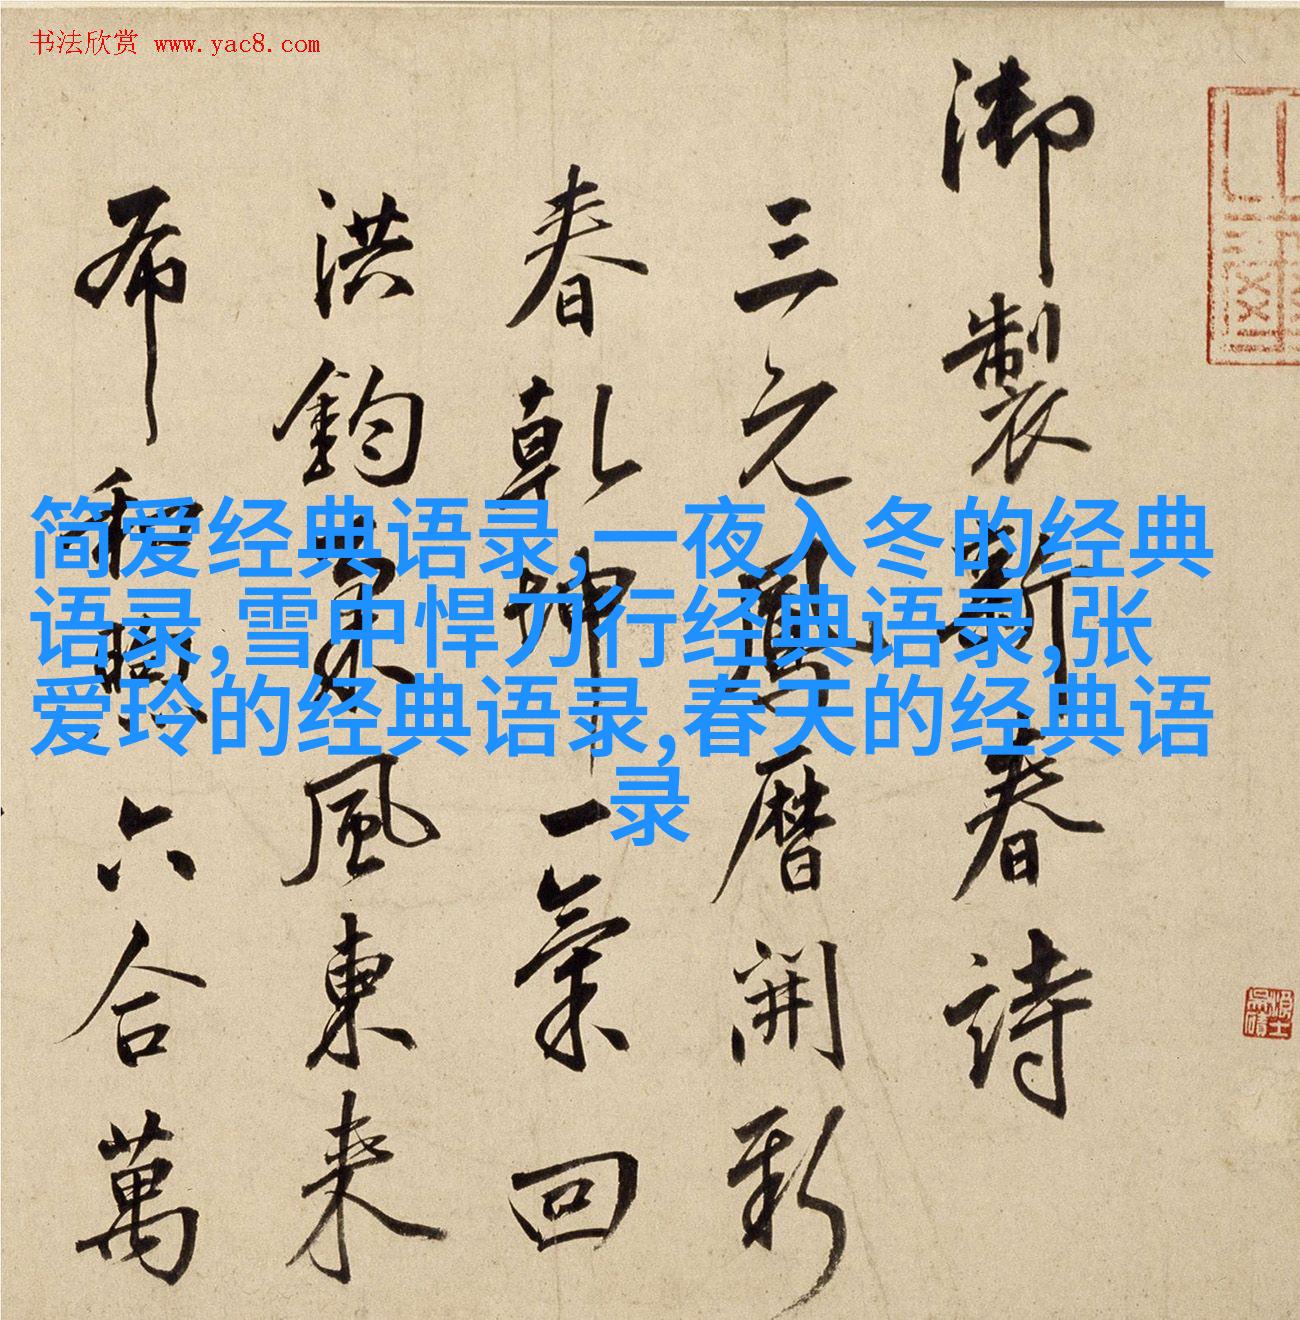 书法欣赏 www.yac8.com
简爱经典语录,一夜入冬的经典
语录,雪中悍刀行经典语录,张
爱玲的经典语录,春天的经典语
录
御製新春詩
三元鳳暦開新
春乾坤一氣回
洪鈞風東来
布和六合萬